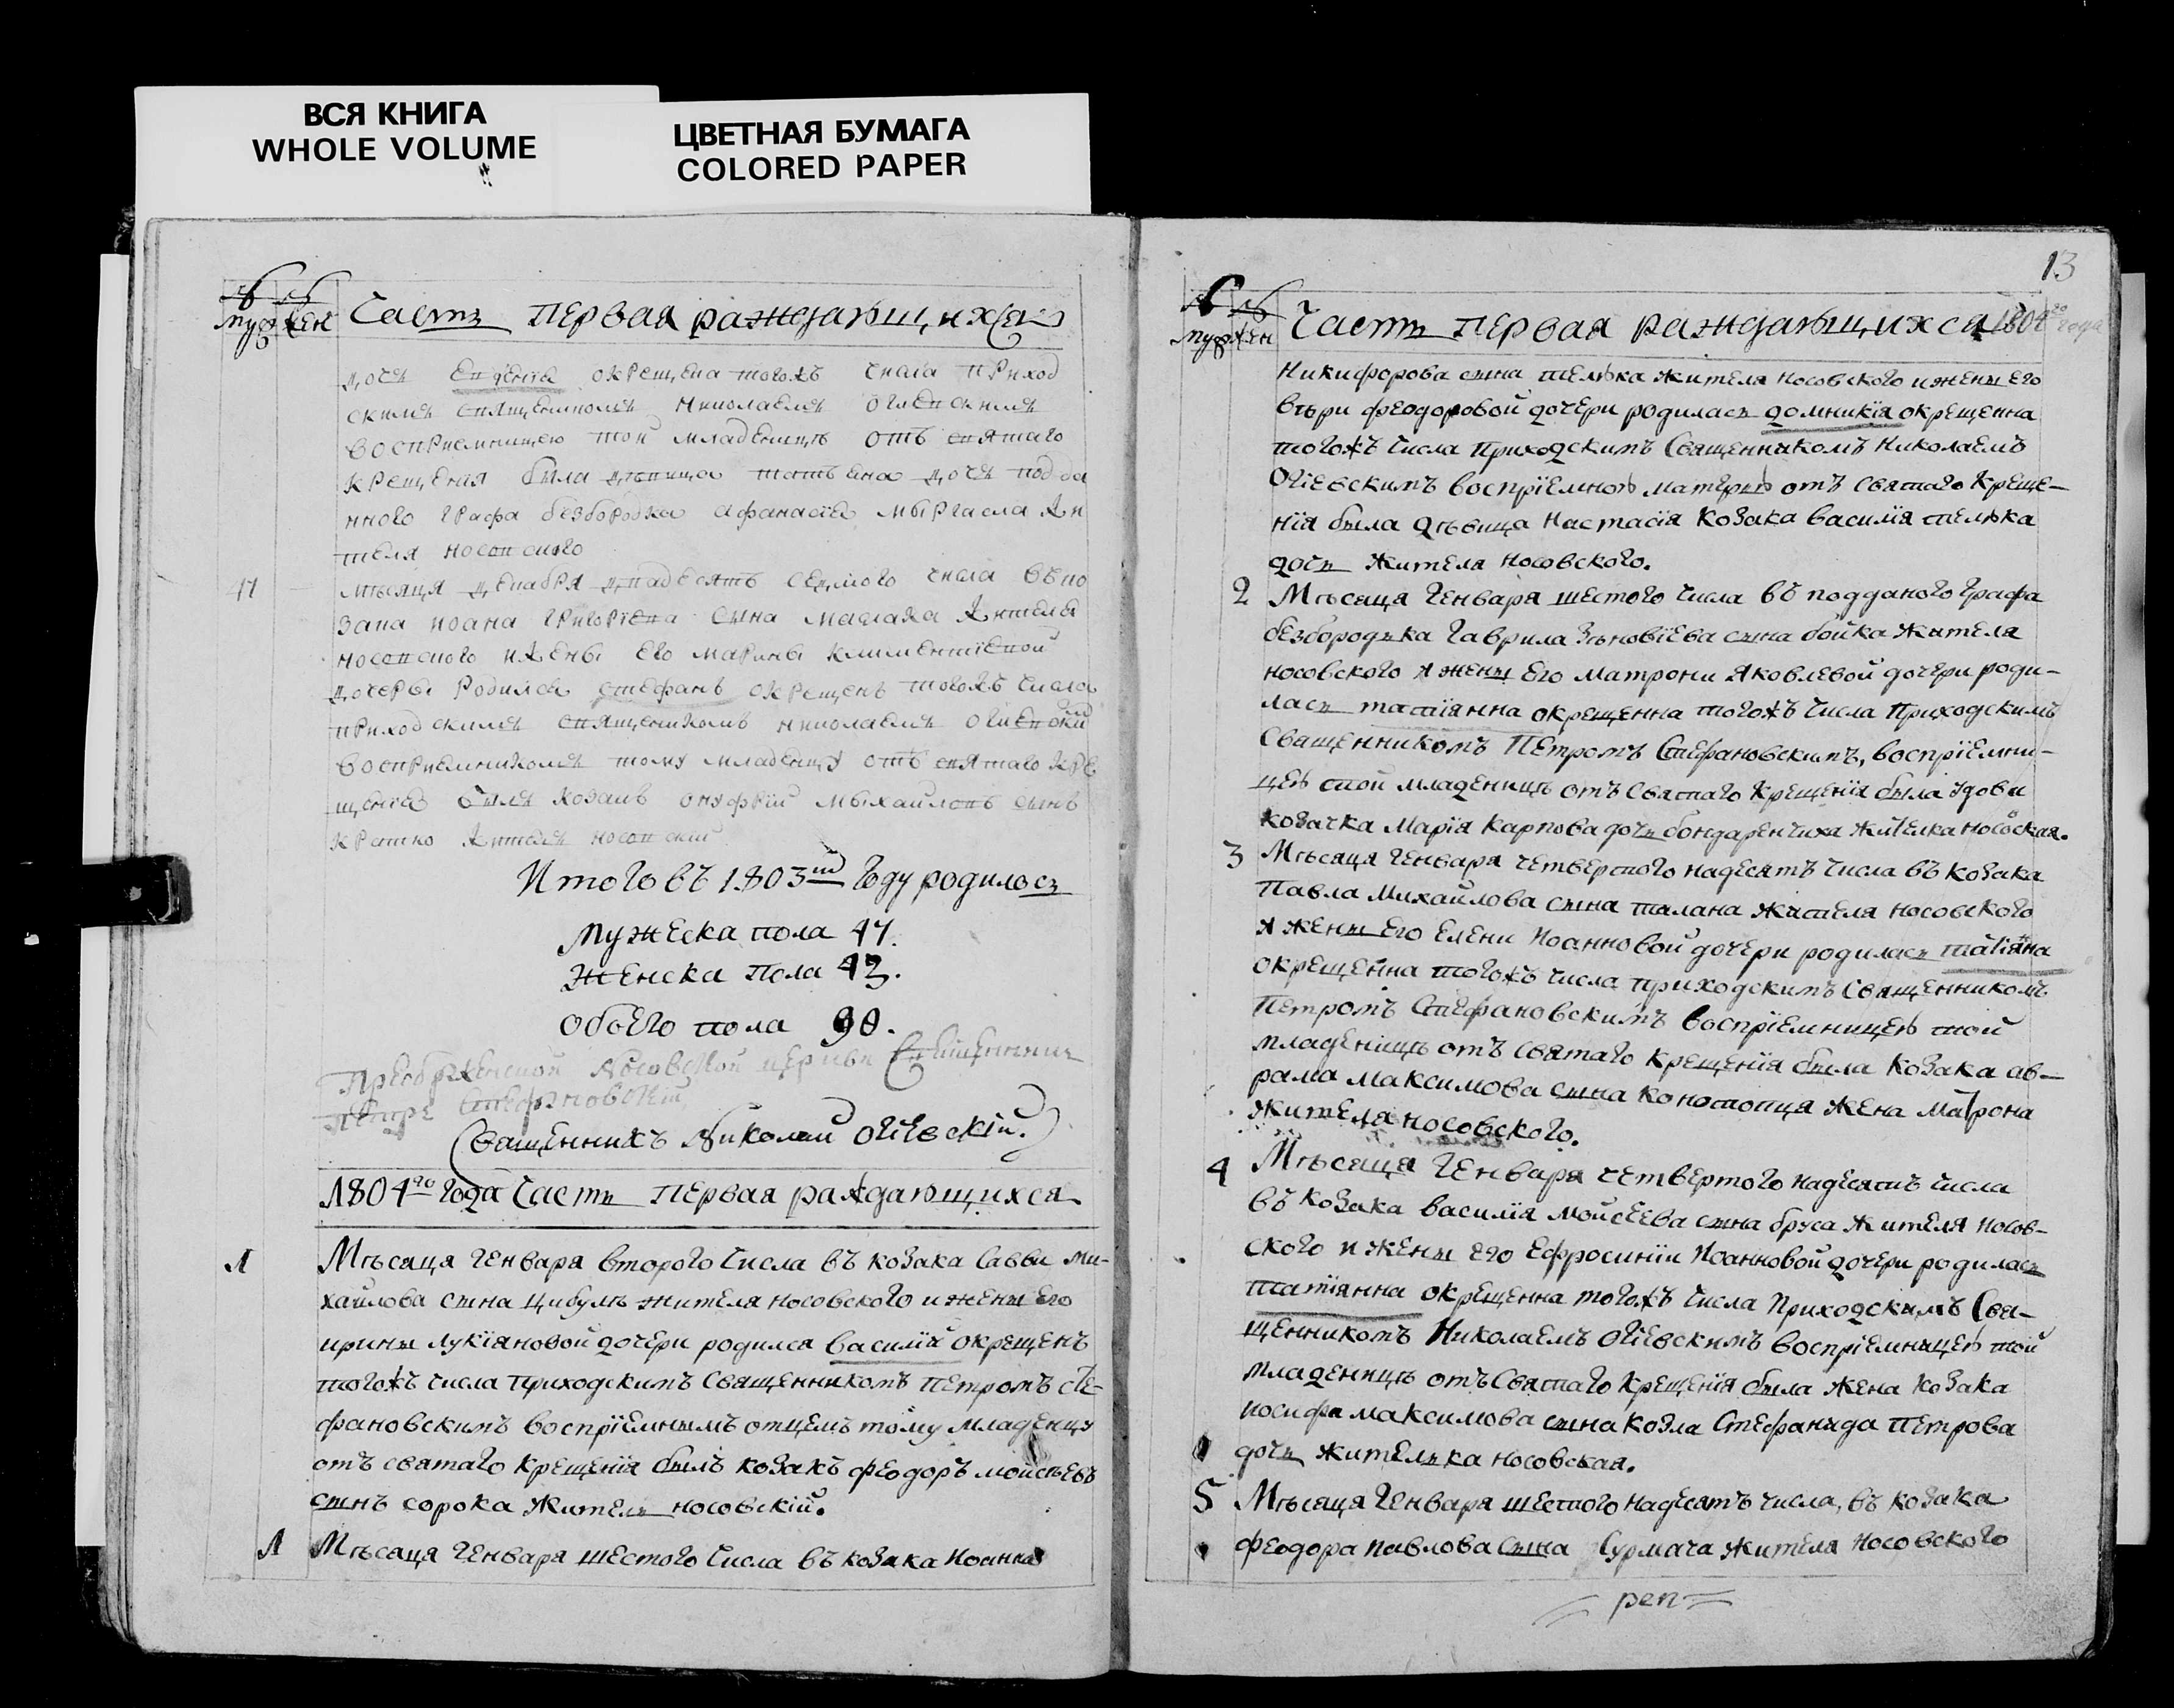 ВСЯ КНИГА
WHOLE VOLUME
ЦВЕТНАЯ БУМАГА
COLORED PAPER
муж жен Часть первая раждающихся
дочь Евдокія окрещена тогожъ числа приход
скимъ священикомъ николаемъ огіевскимъ
восприемницею той младеницѣ отъ святаго
крещения была дѣвица татьяна дочь подда
нного графа безбородка афанасія жи
теля носовского
47 мѣсяця декабря двадесять седмого числа въ ко
зака иоана григоріева сына малаха жителя
носовского ижены его марины климентіевой
дочеры родился стефанъ окрещенъ тогожъ числа
приходскимъ священикомъ николаемъ огіевски
восприемникомъ тому младенцу отъ святаго кре
щенія былъ козакъ онуфрій мыхайловъ сынъ
кратко житель носовскій
Итого въ 1803мъ году родилось
Мужеска пола 47.
Женска пола 43.
Обоего пола 90.
Преображенской Носовской церкви Священникъ
петръ Стефановскій
Священникъ Николай огіевскій.
1804го года Часть первая раждающихся
1 Мѣсяця Генваря второго числа въ козака Саввы ми-
хайлова сына Цибулѣ жителя носовского и жены его
ирины лукіяновой дочери родился василій окрещенъ
тогожъ числа приходскимъ священникомъ петромъ сте-
фановскимъ воспріемнымъ отцемъ тому младенцу
отъ святаго крещенія былъ козакъ феодоръ мойсѣевъ
сынъ сорока житель носовскій.
1 Мѣсяця Генваря шестого числа въ козака Иоанна
13
муж жен Часть первая раждающихся 1804го года
Никифорова сына жителя носовского и жены его
вѣри феодоровой дочери родилась домникія окрещенна
тогожъ числа приходскимъ Священникомъ Николаемъ
Огіевскимъ воспріемною матерью отъ святаго креще-
нія была дѣвица Настасія Козака василія
дочь жителя носовского.
2 Мѣсяця Генваря шестого числа въ подданого графа
безбородька Гаврила Зѣновіева сына бойка жителя
носовского и жены его матрони Яковлевой дочери роди-
лась татіянна окрещенна тогожъ числа приходскимъ
Священникомъ Петромъ Стефановскимъ, воспріемни-
цею той младеницѣ отъ святаго крещенія была удови
козачка Марія Карпова дочь бондаренчиха жителка носовская.
3 Мѣсяця Генваря четвертого надесять числа въ козака
Павла Михайлова сына талана жителя носовского
и жены его Елени Иоанновой дочери родилась татіяна
окрещенна тогожъ числа приходскимъ Священникомъ
Петромъ Стефановскимъ воспріемницею той
младеницѣ отъ святаго крещенія была козака ав-
рама максимова сына конотопця жена Матрона
жителя носовского.
4 Мѣсяця Генваря четвертого надесять числа
въ козака василія мойсеева сына бруса жителя носов-
ского и жены его Ефросиніи Иоанновой дочери родилась
татіянна окрещенна тогожъ числа приходскимъ Свя-
щенникомъ Николаемъ Огіевскимъ воспріемницею той
младеницѣ отъ святаго крещенія была жена козака
иосифа максимова сына козла Стефанида петрова
дочь жителька носовская.
5 Мѣсяця Генваря шестого надесять числа, въ козака
феодора павлова сына Сурмача жителя носовского